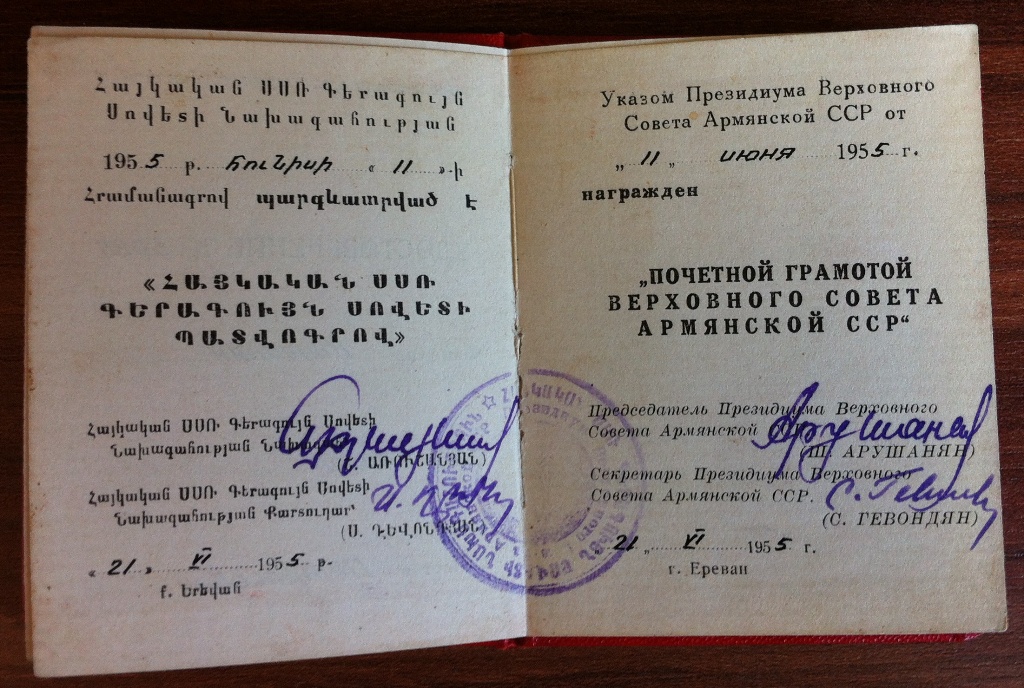 Հայկական ՍՍՌ Գերագույն
Սովետի Նախագահության
1955 թ. հունիսի « 11 »-ի
Հրամանագրով պարգևատրված է
«ՀԱՅԿԱԿԱՆ ՍՍՌ
ԳԵՐԱԳՈՒՅՆ ՍՈՎԵՏԻ
ՊԱՏՎՈԳՐՈՎ»
Հայկական ՍՍՌ Գերագույն Սովետի
Նախագահության
(Շ. ԱՌՈՒՇԱՆՅԱՆ)
Հայկական ՍՍՌ Գերագույն Սովետի
Նախագահության Քարտուղար՝
(Ս. ՂԵՎՈՆԴՅԱՆ)
« 21 » VI 1955 թ.
ք. Երևան
Указом Президиума Верховного
Совета Армянской ССР от
„ 11 „ июня 1955 г.
награжден
„ПОЧЕТНОЙ ГРАМОТОЙ
ВЕРХОВНОГО СОВЕТА
АРМЯНСКОЙ ССР“
Председатель Президиума Верховного
Совета Армянской
(Ш. АРУШАНЯН)
Секретарь Президиума Верховного
Совета Армянской ССР.
(С. ГЕВОНДЯН)
21 „ VI 1955 г.
г. Ереван